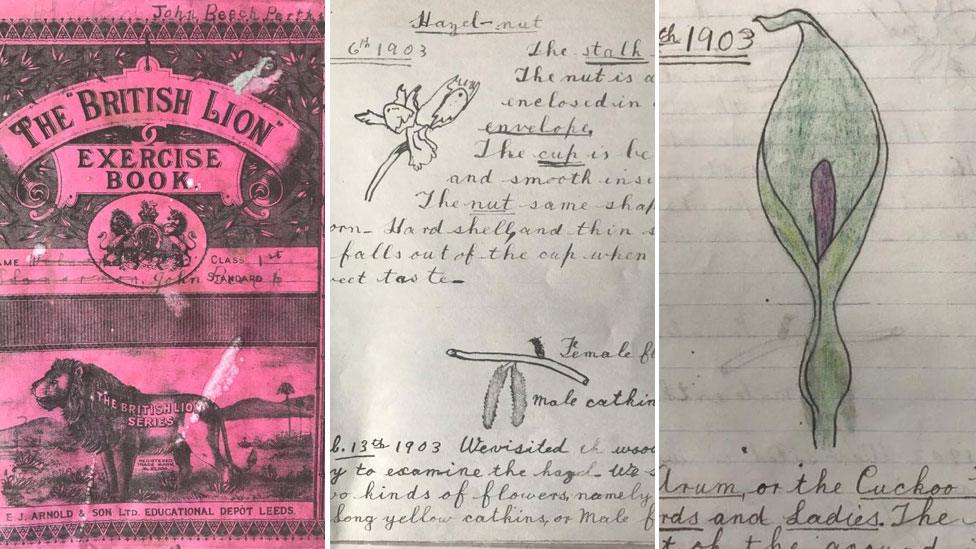 John Beech Perth
THE "BRITISH LION"
EXERCISE
BOOK.
NAME
CLASS 1st
John
STANDARD 6
THE BRITISH LION
SERIES
REGISTERED
TRADE MARK
E. J. ARNOLD & SON LTD. EDUCATIONAL DEPÔT LEEDS.
Hazel-nut
6th 1903
The stalk
The nut is a
enclosed in
envelope,
The cup is be
and smooth insi
The nut same shap
orn- Hard shell, and thin s
falls out of the cup when
eet taste-
Female fl
Male catkin
b. 13th 1903 We visited woo
y to examine the hazel. We s
o kinds of flowers, namely
Long yellow catkins, or Male f
th 1903
Arum, or the Cuckoo
rds and Ladies. The
t of the ground